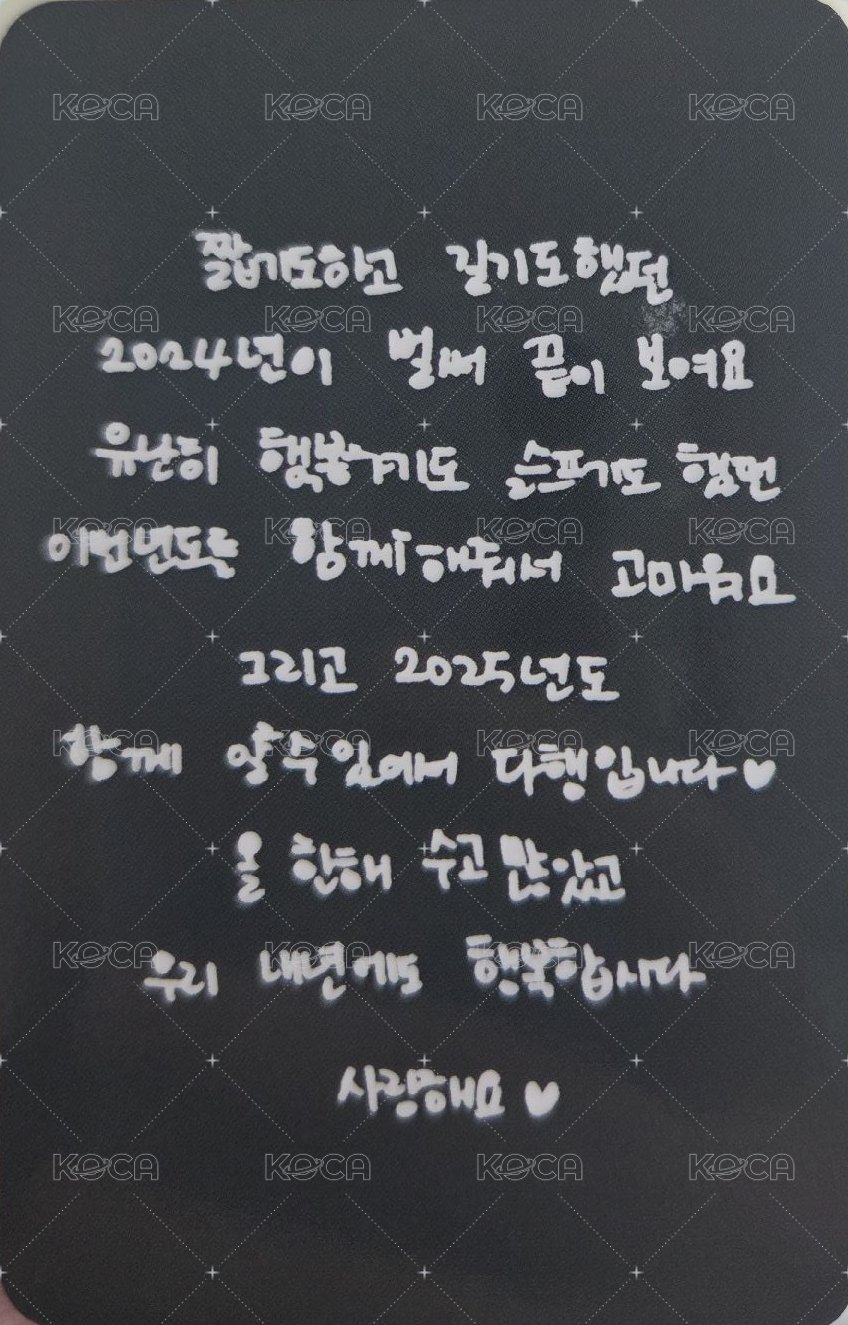 짧기도하고 길기도했던
2024년이 벌써 끝이 보여요
유난히 행복하기도 슬프기도 했던
이번년도를 함께해줘서 고마워요
그리고 2025년도
함께 할수있어서 다행입니다♥
올 한해 수고 많았고
우리 내년에도 행복합시다
사랑해요 ♥
KOCA